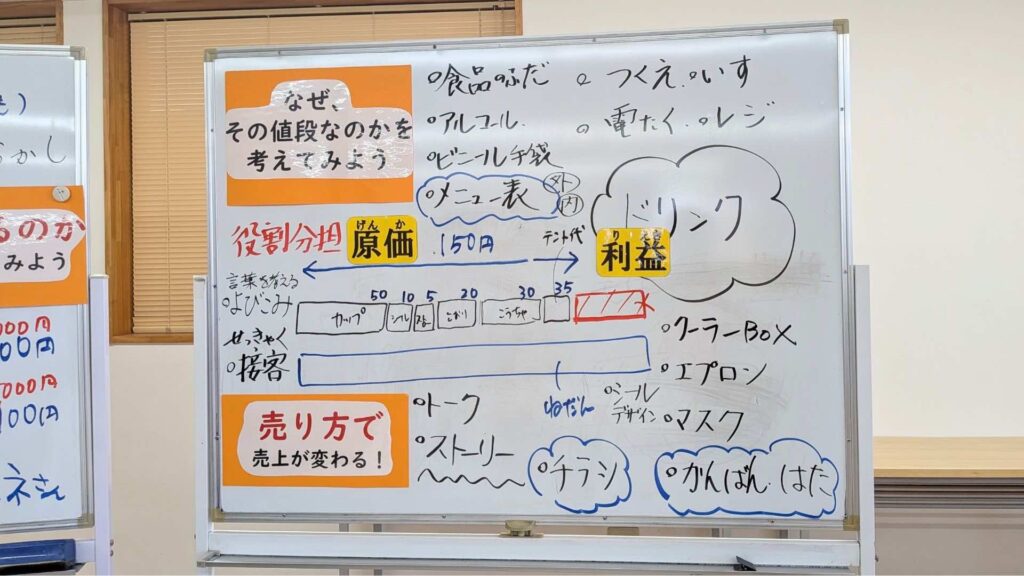 なぜ、
その値段なのかを
考えてみよう
○食品のふだ
○つくえ ○いす
○アルコール
○電たく ○レジ
○ビニール手袋
○メニュー表
外
内
ドリンク
役割分担
げん か
原価
150円
テント代
り えき
利益
言葉を考える
○よびこみ
50 10 5 20 30 35
カップ
シール
こおり
こうちゃ
せっきゃく
○接客
○クーラーBOX
○エプロン
ねだん
○シール
デザイン
○マスク
売り方で
売上が変わる！
○トーク
○ストーリー
○チラシ
○かんばん はた
かし
るのか
みよう
000円
00円
000円
100円
ネさん